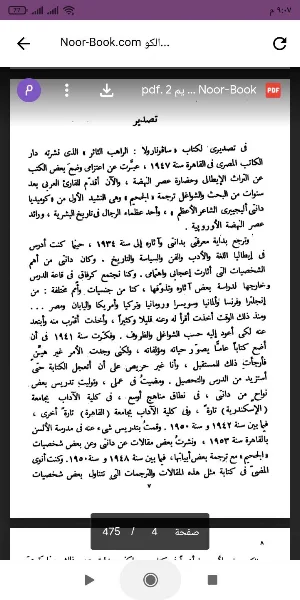 ٩:٠٧ م
77
Noor-Book.com الكو...
P
pdf. 2 يم ... Noor-Book
PDF
تصدير
فى تصديرى لكتاب « سافونارولا : الراهب الثائر » الذى نشرته دار
الكاتب المصرى فى القاهرة سنة ١٩٤٧ ، عبّرت عن اعتزامى وضع بعض الكتب
عن التراث الإيطالى وحضارة عصر النهضة ، والآن أقدّم للقارئ العربى بعد
سنوات من البحث والشواغل ترجمة « الجحيم » وهى النشيد الأول من « كوميديا
دانتى أليجييرى الشاعر الأعظم » ، وأحد عظماء الرجال فى تاريخ البشرية ، ورائد
عصر النهضة الأوروبية .
وترجع بداية معرفتى بدانتى وآثاره إلى سنة ١٩٣٤ ، حينما كنت أدرس
فى إيطاليا اللغة والأدب والفن والسياسة والتاريخ . وكان دانتى من أهم
الشخصيات التى أثارت إعجابى واهتمامى . وكنا نجتمع كرفاق فى قاعة الدرس
وخارجها لدراسة بعض آثاره وتذوقها ، كنا من جنسيات وأمم مختلفة : من
إنجلترا وفرنسا وألمانيا وسويسرا ورومانيا وتركيا وأمريكا واليابان ومصر ...
ومنذ ذلك الوقت أخذت أقرأ له وعنه قليلا وكثيراً ، وأخذت أقترب منه وأبتعد
عنه لكى أعود إليه حسب الشواغل والظروف . وفكرت سنة ١٩٤١ فى أن
أضع كتاباً عاماً يصوّر حياته ومؤلفاته ، ولكنى وجدت الأمر غير هيّن
فأرجأت ذلك للمستقبل ، وأنا غير حريص على أن أتعجل الكتابة حتى
أستزيد من الدرس والتحصيل . ومضيت فى عملى ، وتوليت تدريس بعض
نواح من دانتى ، فى نطاق مناهج أوسع ، فى كلية الآداب بجامعة
(الإسكندرية) تارة ، وفى كلية الآداب بجامعة (القاهرة) تارة أخرى ،
فيما بين سنة ١٩٤٢ و ١٩٥٠ . وقمت بتدريس شىء عنه فى مدرسة الألسن
بالقاهرة سنة ١٩٥٣ ، ونشرت بعض مقالات عن دانتى وعن بعض شخصيات
« الجحيم » مع ترجمة بعض أبياتها ، فيما بين سنة ١٩٤٨ و سنة ١٩٥٠ . وكنت أنوى
المضىّ فى كتابة مثل هذه المقالات والترجمات التى تتناول بعض شخصيات
٧
صفحة 4 / 475
٨